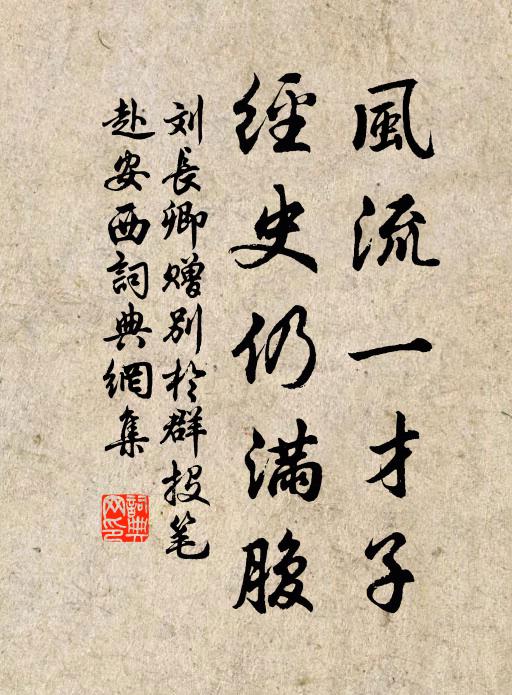 風流一才子
經史仍滿腹
刘長卿赠别於群投笔
赴安西詞典網集
詞典网印